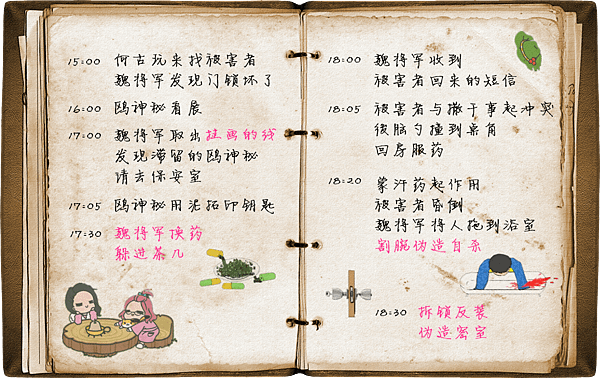 15:00 何古玩来找被害者
魏将军发现门锁坏了
16:00 鸥神秘看展
17:00 魏将军取出挂画的线
发现滞留的鸥神秘
请去保安室
17:05 鸥神秘用泥拓印钥匙
17:30 魏将军换药
躲进茶几
18:00 魏将军收到
被害者回来的短信
18:05 被害者与撒干事起冲突
后脑勺撞到桌角
回房服药
18:20 蒙汗药起作用
被害者昏倒
魏将军将人拖到浴室
割腕伪造自杀
18:30 拆锁反装
伪造密室